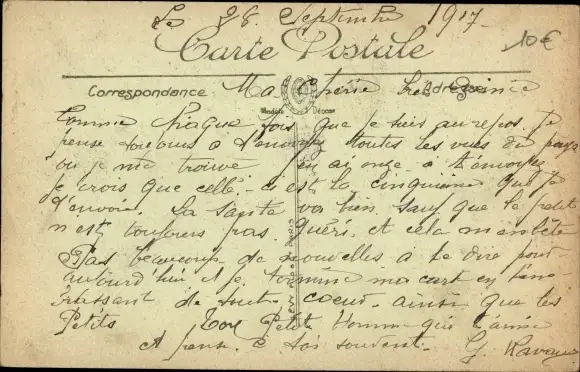 Le 28 Septembre 1917
10€
Carte Postale
Correspondance Adresse
Ma cherie
Modèle Déposé
Comme chaque fois que je suis au repos. Je
pense toujours a t'envoyer toutes les vues du pays
ou je me trouve j'en ai onze a t'envoyer
je crois que celle-ci est la cinquieme que je
t'envoie. La santé va bien sauf que le petit
n'est toujours pas guéri et cela m'embête
Pas beaucoup de nouvelles a te dire pour
aujourd'hui et je termine ma cart en t'em-
brassant de tout coeur ainsi que les
Petits Ton Petit Homme qui t'aime
et pense a toi souvent. G.